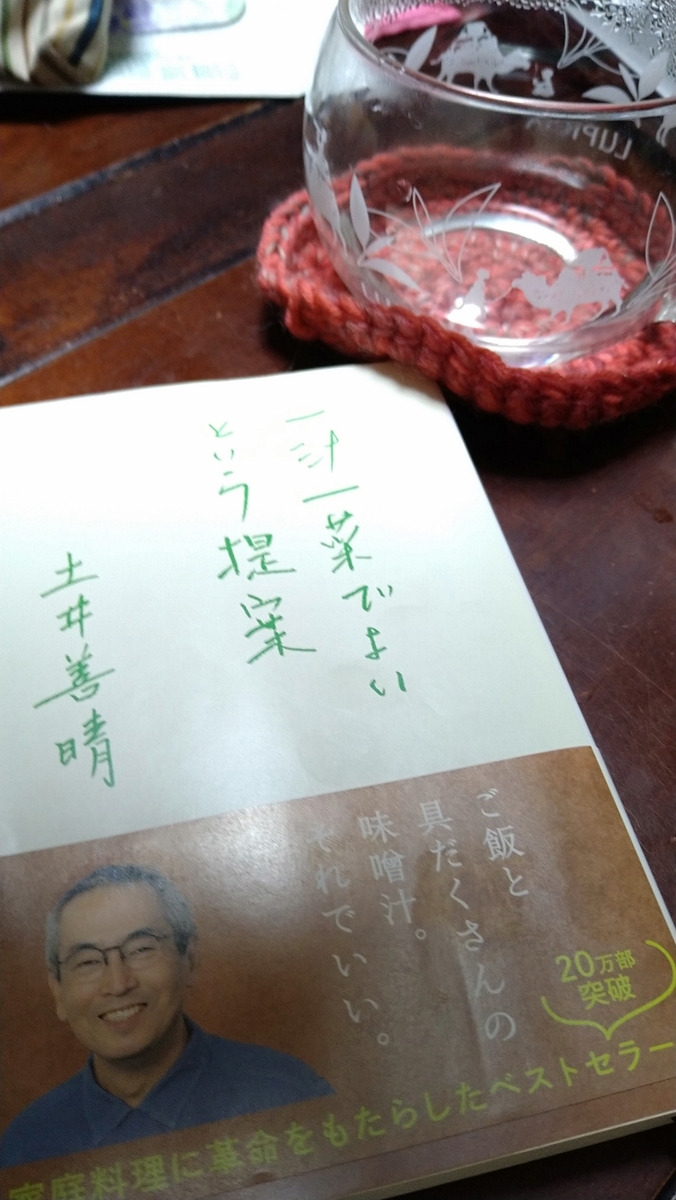 一汁一菜でよい
という提案
土井善晴
ご飯と
具だくさんの
味噌汁。
それでいい。
20万部
突破
家庭料理に革命をもたらしたベストセラー